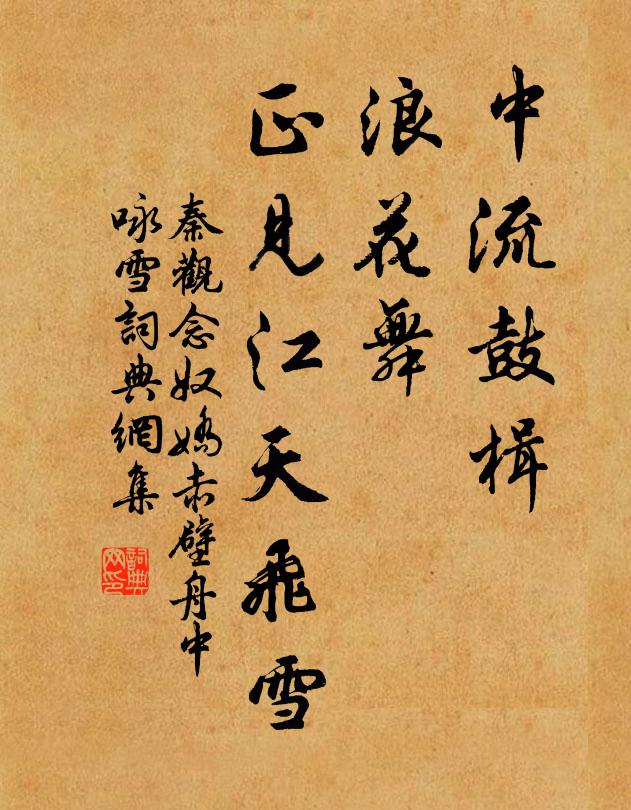 中流鼓楫
浪花舞
正見江天飛雪
秦觀念奴嬌赤壁舟中
咏雪詞典網集
詞典
网印